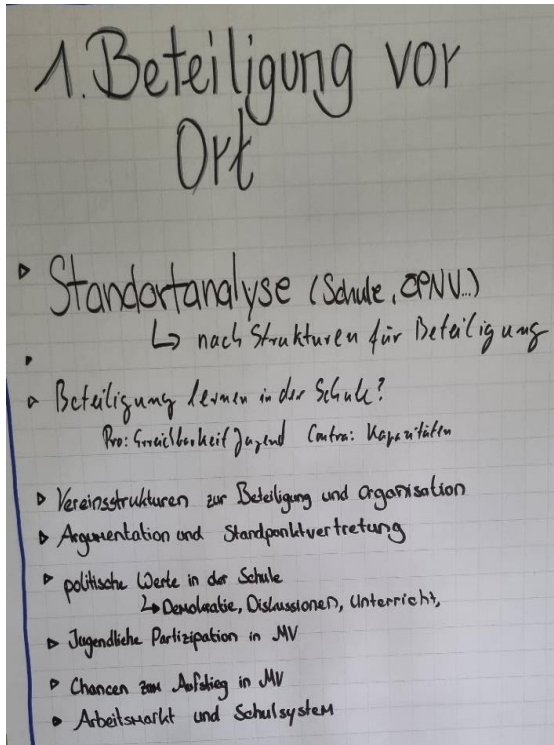 1. Beteiligung vor
Ort
▹ Standortanalyse (Schule, ÖPNV...)
↳ nach Strukturen für Beteiligung
▹
▹ Beteiligung lernen in der Schule?
Pro: Erreichbarkeit Jugend Contra: Kapazitäten
▹ Vereinsstrukturen zur Beteiligung und Organisation
▹ Argumentation und Standpunktvertretung
▹ politische Werte in der Schule
↳ Demokratie, Diskussionen, Unterricht,
▹ Jugendliche Partizipation in MV
▹ Chancen zum Aufstieg in MV
▹ Arbeitsmarkt und Schulsystem